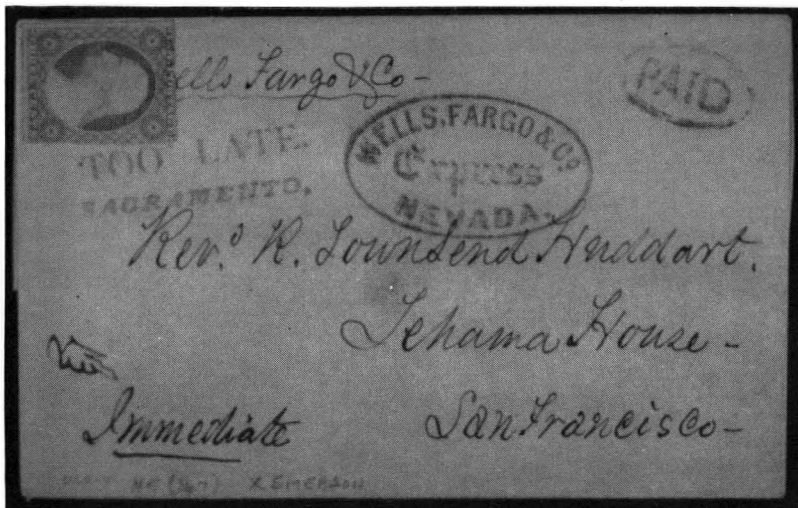 Wells Fargo & Co -
PAID
TOO LATE.
SACRAMENTO.
WELLS, FARGO & CO.
Express
NEVADA.
Rev.d R. Townsend Huddart.
Tehama House -
San Francisco -
Immediate
X EMERSON